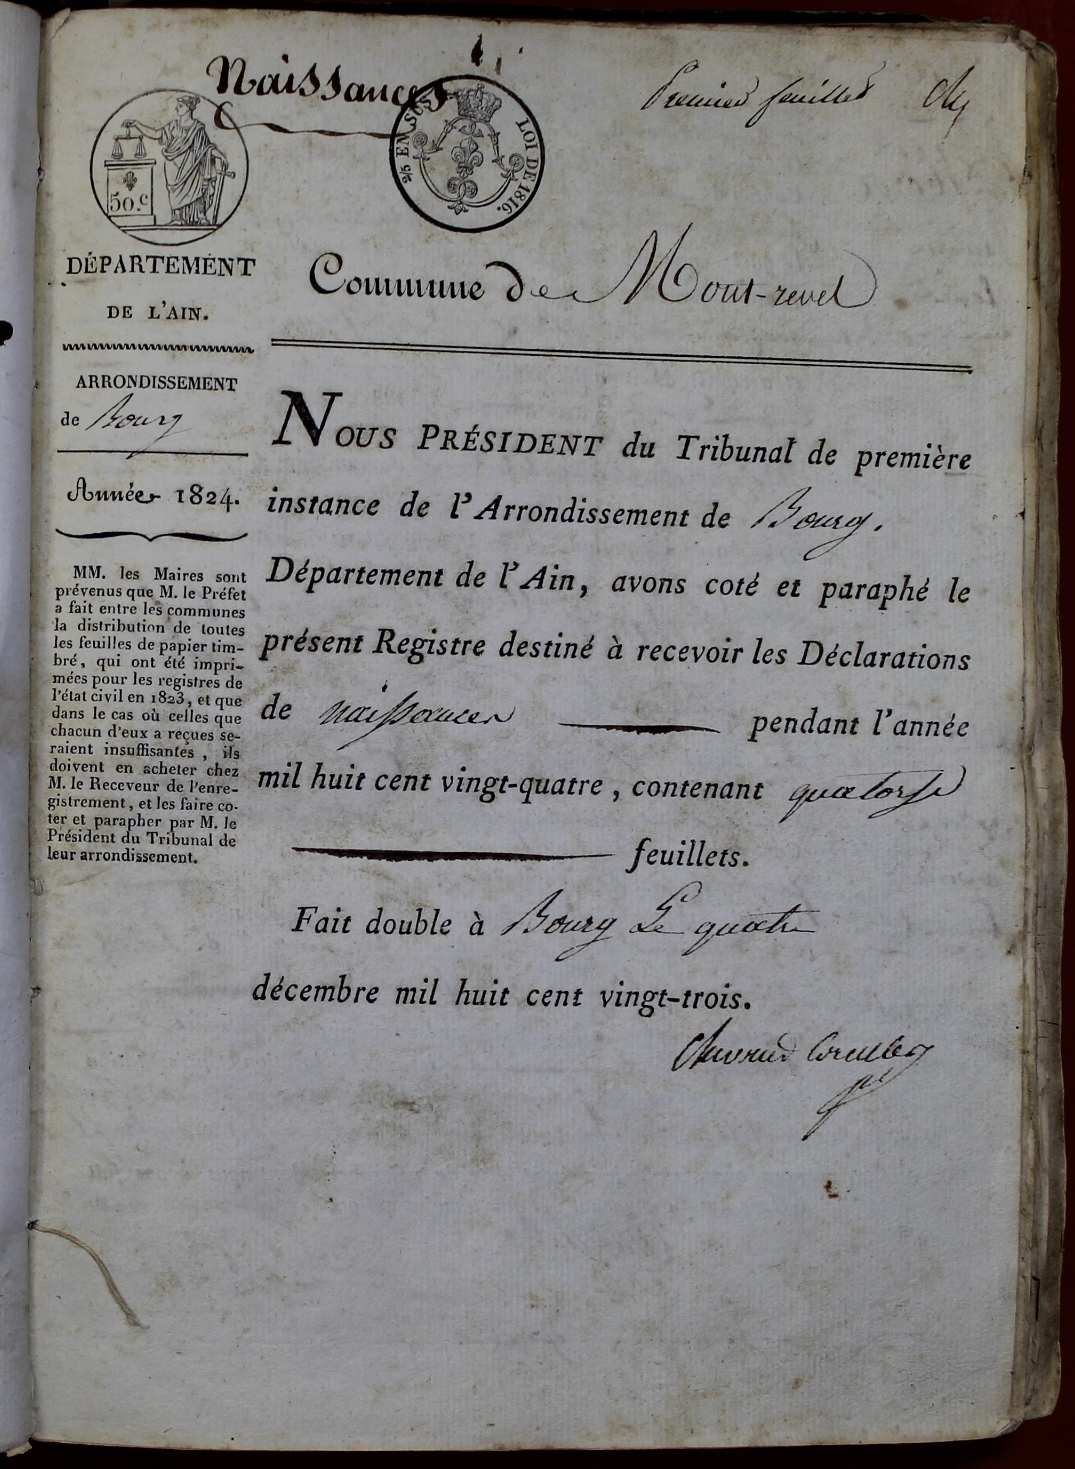 Naissances
Premier feuillet
50.c
2/5 EN SUS
LOI DE 1816.
DÉPARTEMENT
DE L'AIN.
Commune de Mont-revel
ARRONDISSEMENT
de Bourg
Année 1824.
MM. les Maires sont
prévenus que M. le Préfet
a fait entre les communes
la distribution de toutes
les feuilles de papier tim-
bré, qui ont été impri-
mées pour les registres de
l'état civil en 1823, et que
dans le cas où celles que
chacun d'eux a reçues se-
raient insuffisantes, ils
doivent en acheter chez
M. le Receveur de l'enre-
gistrement, et les faire co-
ter et parapher par M. le
Président du Tribunal de
leur arrondissement.
NOUS PRÉSIDENT du Tribunal de première
instance de l'Arrondissement de Bourg.
Département de l'Ain, avons coté et paraphé le
présent Registre destiné à recevoir les Déclarations
de naissances pendant l'année
mil huit cent vingt-quatre, contenant quatorze
feuillets.
Fait double à Bourg Le quatre
décembre mil huit cent vingt-trois.